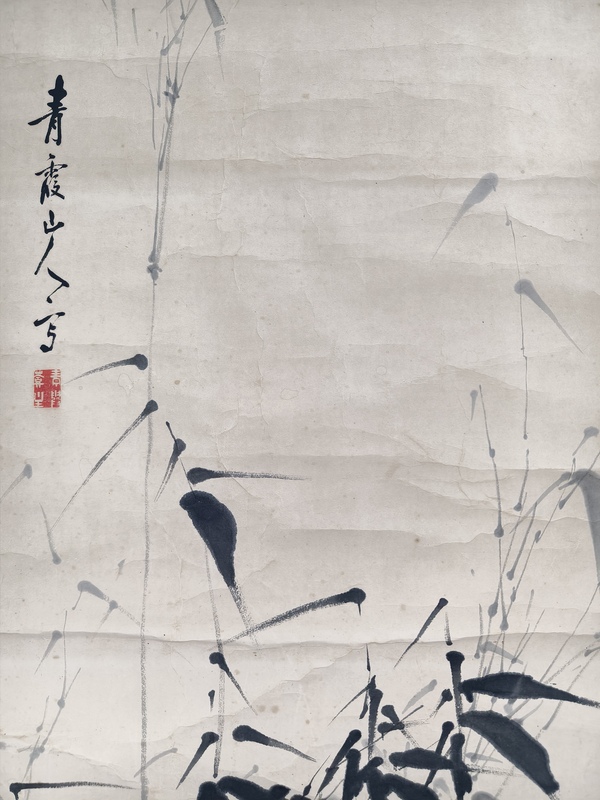 青霞山人写